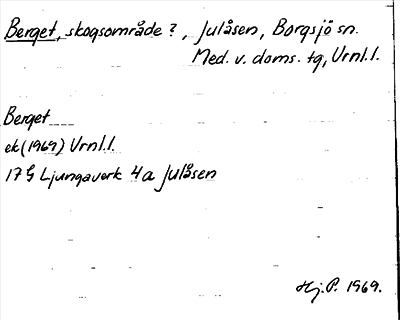 Berget, skogsområde?, Julåsen, Borgsjö sn.
Med. v. doms. tg, Vrnl.l.
Berget
ek(1969) Vrnl.l.
17 G Ljungaverk 4a Julåsen
Hj.P. 1969.